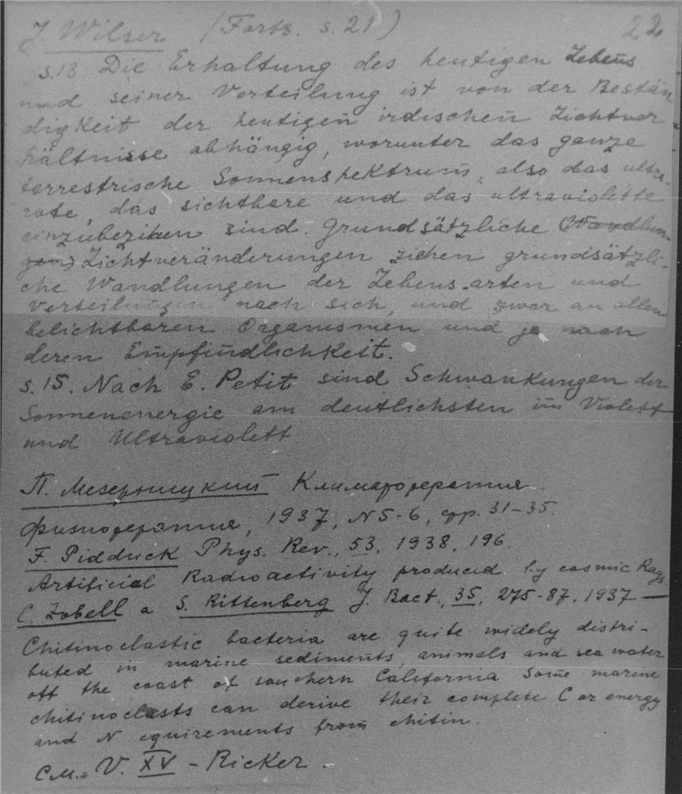 J. Wilser (Forts. s. 21) 22
s.13 Die Erhaltung des heutigen Lebens
und seiner Verteilung ist von der Bestän-
digkeit der heutigen irdischen Lichtver
hältnisse abhängig, worunter das ganze
terrestrische Sonnenspektrum, also das ultra-
rote, das sichtbare und das ultraviolette
einzubeziehen sind. Grundsätzliche (Wandlun-
gen) Lichtveränderungen ziehen grundsätzli-
che Wandlungen der Lebensarten und
Verteilungen nach sich, und zwar an allen
belichtbaren Organismen und je nach
deren Empfindlichkeit.
s.15. Nach E. Petit sind Schwankungen der
Sonnenenergie am deutlichsten im Violett
und Ultraviolett
П. Мезерницкий Климатотерапия.
Физиотерапия, 1937, N5-6, стр. 31-35.
F. Pidduck Phys. Rev., 53, 1938, 196.
Artificial Radioactivity produced by cosmic Rays
C. Zobell a S. Rittenberg J. Bact., 35, 275-87, 1937 —
Chitinoclastic bacteria are quite widely distri-
buted in marine sediments, animals and sea water
off the coast of southern California Some marine
chitinoclasts can derive their complete C or energy
and N equirements from chitin.
см. V. XV - Ricker.